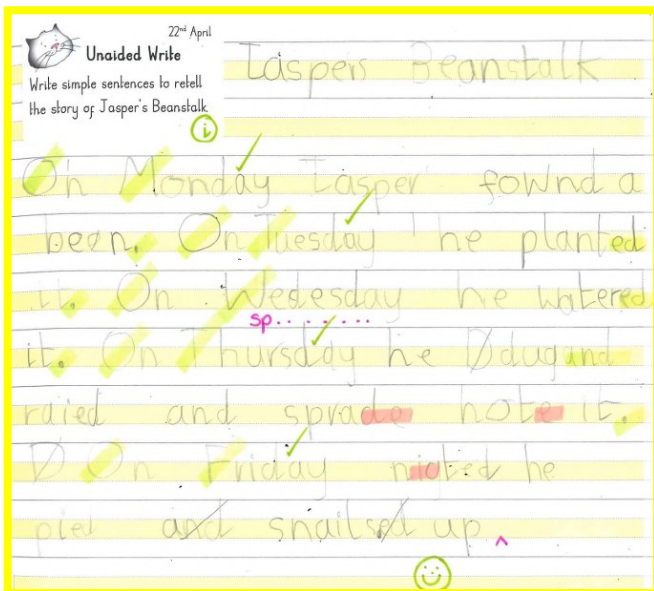 22nd April
Unaided Write
Write simple sentences to retell
the story of Jasper's Beanstalk.
i
Iaspers Beanstalk
On Monday Iasper fownd a
been. On Tuesday he planted
it. On Wedesday he watered
sp
it. On Thursday he dug and
raied and sprade hote it.
On Friday he
pied and snails up
^